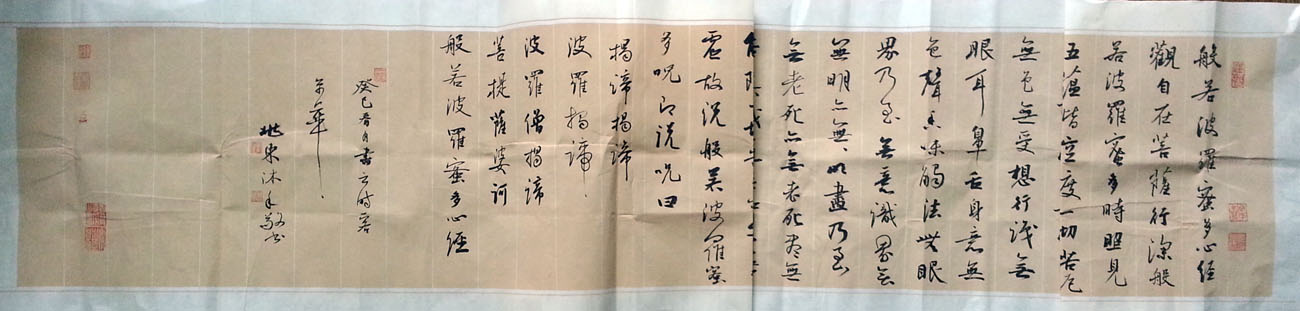 般若波羅蜜多心經
觀自在菩薩行深般
若波羅蜜多時照見
五蘊皆空度一切苦厄
無色無受想行識無
眼耳鼻舌身意無
色聲香味觸法無眼
界乃至無意識界無
無明亦無明盡乃至
無老死亦無老死盡無
虛故說般若波羅蜜
多咒即說咒曰
揭諦揭諦
波羅揭諦
波羅僧揭諦
菩提薩婆訶
般若波羅蜜多心經
癸巳春月書之時客
京華